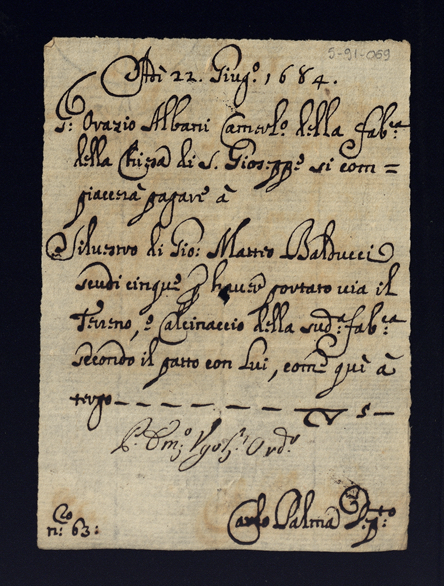 5-91-059
Adì 22. Giug.º 1684.
S.r Orazio Albani Camerl.º della fab.ca
della Chiesa di S. Gioseppe si com=
piacerà pagare à
Silvestro di Gio: Matteo Balducci
scudi cinque p haver portato via il
Terreno, e Calcinaccio della sud.a fab.ca
secondo il patto con lui, come quì à
tergo 5
Ord.º
n.º 63:
Carlo Palma